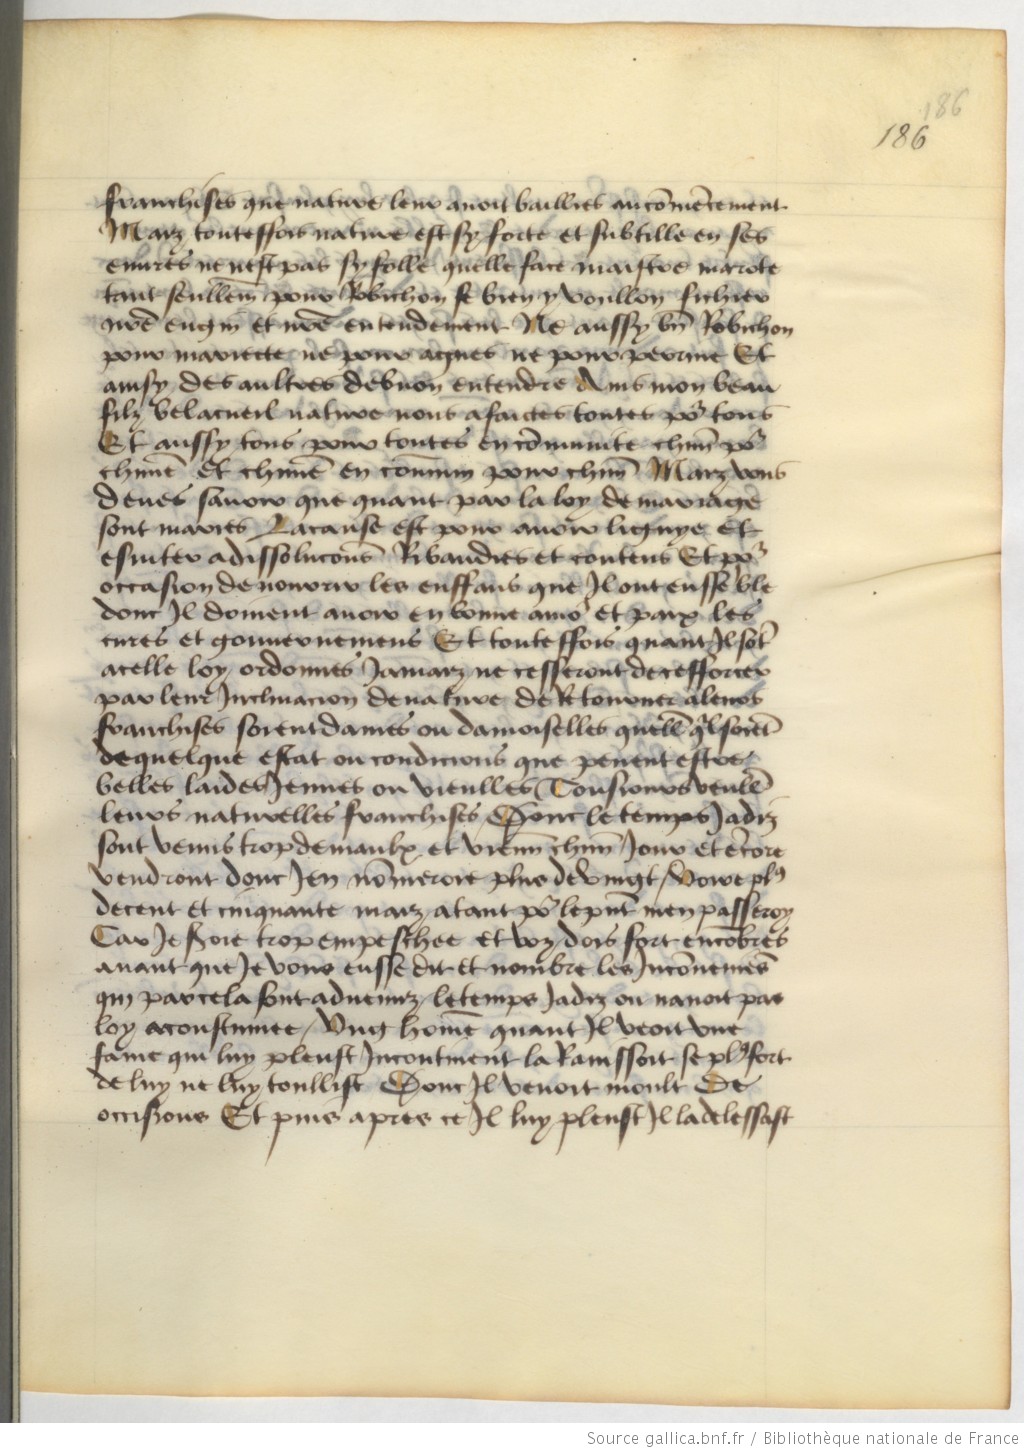 186
186
franchises que nature leur auoit baillies au cōmēcement
Maiz touteffois nature est sy forte et subtille en ses
euures ne nest pas sy folle quelle face naistre marote
tant seullem̄ pour Robichon se bien y voullon fichier
nr̄e engin et nr̄e entendement Ne aussy bn̄ Robichon
pour mariette ne pour agnes ne pour perrine Et
ainsy des aultres debuon entendre Ains mon beau
filz belacueil nature nous a faictes toutes po᷑ tous
Et aussy tous pour toutes en cōmunite chūn po᷑
chūne Et chūne en cōmun pour chūn Maiz vous
deues sauoir que quant par la loy de mariage
sont maries La cause est pour auoir lignye Et
esuiter a dissolucōns Ribaudies et contens Et po᷑
occasion de nourir les enffans que Il ont enssēble
dont Il doiuent auoir en bonne amo᷑ et paix les
cures et gouuernemens Et touteffois quant Il sōt
a celle loy ordonnes Jamaiz ne cesseront de cefforcer
par leur Inclinacion de nature de Retourner a leurs
franchises soient dames ou damoiselles quell̄ ql̄ soiēt
de quelque estat ou condicions que peuent estre
belles laides Jeunes ou vieulles Tousiours veull̄
leurs naturelles franchises Donc le temps Jadiz
sont venus trop de maulx et vienn̄ chūn Jour Et ēcore
vendront donc Jen nōmeroie plus de vingt / Voire pl9
de cent et cinquante maiz atant po᷑ le pn̄t men passeroy
Car Je seroie trop empeschee et voz dois fort encōbres
auant que Je vous eusse dit et nombre les Incōuemēs
qui par cela sont aduenuz / le temps Jadiz ou nauoit pas
loy acoustumee / Vng home quant Il veoit vne
fame qui luy pleust Incontinent la Rauissoit se pl9 fort
de luy ne luy toullist Donc Il venoit moult De
occisions Et puis apres ce Il luy pleust Il la delessast
Source gallica.bnf.fr / Bibliothèque nationale de France